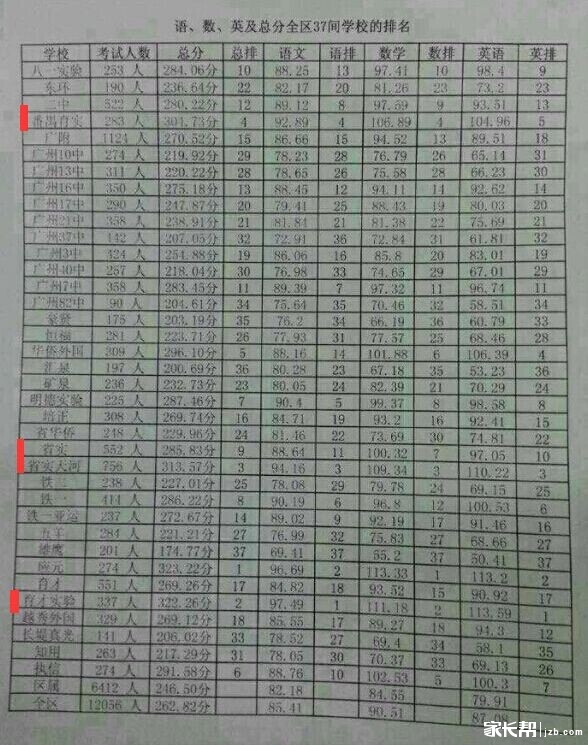 语、数、英及总分全区37间学校的排名
学校 考试人数 总分 总排 语文 语排 数学 数排 英语 英排
八一实验 253 人 284.06分 10 88.25 13 97.41 10 98.4 9
东环 190 人 236.64分 22 82.17 20 81.26 23 73.2 23
二中 522 人 280.22分 12 89.12 8 97.59 9 93.51 13
番禺育实 283 人 301.73分 4 92.89 4 106.89 4 104.96 5
广附 1124 人 270.52分 15 86.66 15 94.52 13 89.51 18
广州10中 274 人 219.92分 29 78.23 28 76.79 26 65.14 31
广州13中 311 人 220.22分 28 78.65 26 75.58 28 66.23 30
广州16中 350 人 275.18分 13 88.45 12 94.11 14 92.62 14
广州17中 290 人 247.87分 20 79.41 25 88.43 19 80.03 20
广州21中 358 人 238.91分 21 81.84 21 81.38 22 75.69 21
广州37中 442 人 207.05分 32 72.91 36 72.84 31 61.81 32
广州3中 424 人 254.88分 19 86.06 16 85.8 20 83.01 19
广州40中 257 人 218.04分 30 76.98 33 74.65 29 67.01 29
广州7中 358 人 283.45分 11 89.39 7 97.32 11 96.74 11
广州82中 90 人 204.61分 34 75.64 35 70.46 32 58.51 34
豪贤 175 人 203.19分 35 76.2 34 66.19 36 60.79 33
恒福 281 人 223.71分 26 77.93 31 77.57 25 68.46 28
华侨外国 309 人 296.10分 5 88.16 14 101.88 6 106.39 4
汇泉 197 人 200.69分 36 80.28 23 67.18 35 53.23 36
矿泉 236 人 232.73分 23 80.05 24 82.39 21 70.29 24
明德实验 225 人 287.46分 7 90.4 5 99.37 8 98.58 8
培正 308 人 269.74分 16 84.71 19 93.2 16 92.41 15
省华侨 248 人 229.96分 24 81.46 22 73.69 30 74.81 22
省实 552 人 285.83分 9 88.64 11 100.32 7 97.05 10
省实天河 756 人 313.57分 3 94.16 3 109.34 3 110.22 3
铁二 238 人 227.01分 25 78.08 29 79.78 24 69.15 25
铁一 414 人 286.22分 8 90.19 6 96.8 12 100.53 6
铁一亚运 237 人 272.67分 14 89.02 9 92.19 17 91.46 16
五羊 284 人 221.21分 27 76.99 32 75.83 27 68.66 27
雄鹰 201 人 174.77分 37 69.41 37 55.2 37 50.41 37
应元 274 人 323.22分 1 96.69 2 113.33 1 113.2 2
育才 551 人 269.26分 17 84.82 18 93.52 15 90.92 17
育才实验 337 人 322.26分 2 97.49 1 111.18 2 113.59 1
越秀外国 329 人 269.12分 18 85.55 17 89.27 18 94.3 12
长堤真光 141 人 206.02分 33 78.52 27 69.4 34 58.1 35
知用 263 人 217.29分 31 78.05 30 70.37 33 69.13 26
执信 274 人 291.58分 6 88.76 10 102.53 5 100.3 7
区属 6412 人 246.50分 82.18 84.55 79.91
全区 12056 人 262.82分 85.41 90.51
家长帮 jzb.com